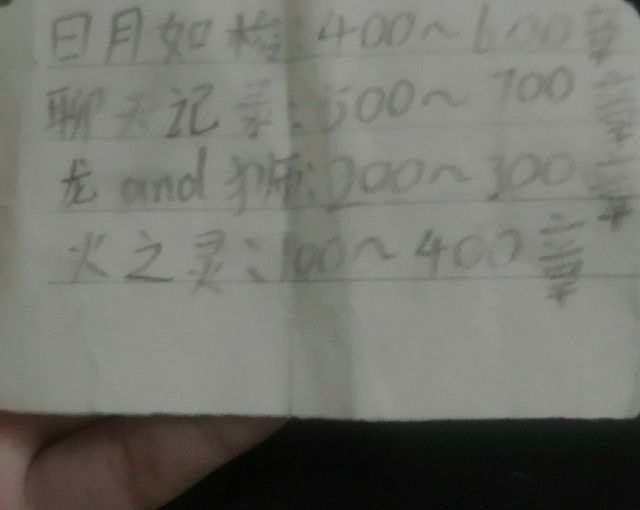 日月如梭:400~600章
聊天记录:500~700章
龙 and 狮:200~300章
火之灵:100~400章